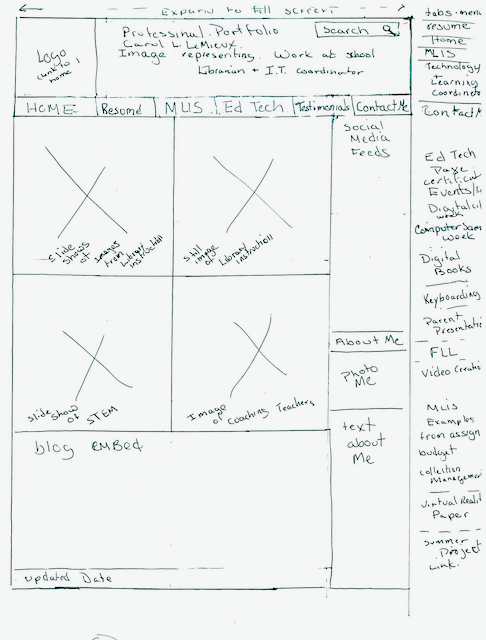 Expand to fill screen
Professional Portfolio
Carol L. LeMieux
Image representing. Work at school
Librarian + I.T. coordinator
Search
Logo
Link to
home
HOME
Resume
MLIS
Ed Tech
Testimonials
Contact Me
Slide
shows
of
Images
from
Library
instruction
Still
image
of
Library
instruction
Social
Media
Feeds
Slide show
of STEM
Image
of
Coaching Teachers
About Me
Photo
Me
text
about
Me
blog embed
updated Date
tabs-menu
resume
Home
MLIS
Technology
+
Learning
Coordinato
Contact M
Ed Tech
Page
Events/
Digital cit
week
Computer Scien
Week
Digital
Books
Keyboarding
Parent
Presentati
FLL
Video Creati
MLIS
Examples
from assign
budget
collection
Managemen
Virtual Realit
Paper
Summer
Project
Link.